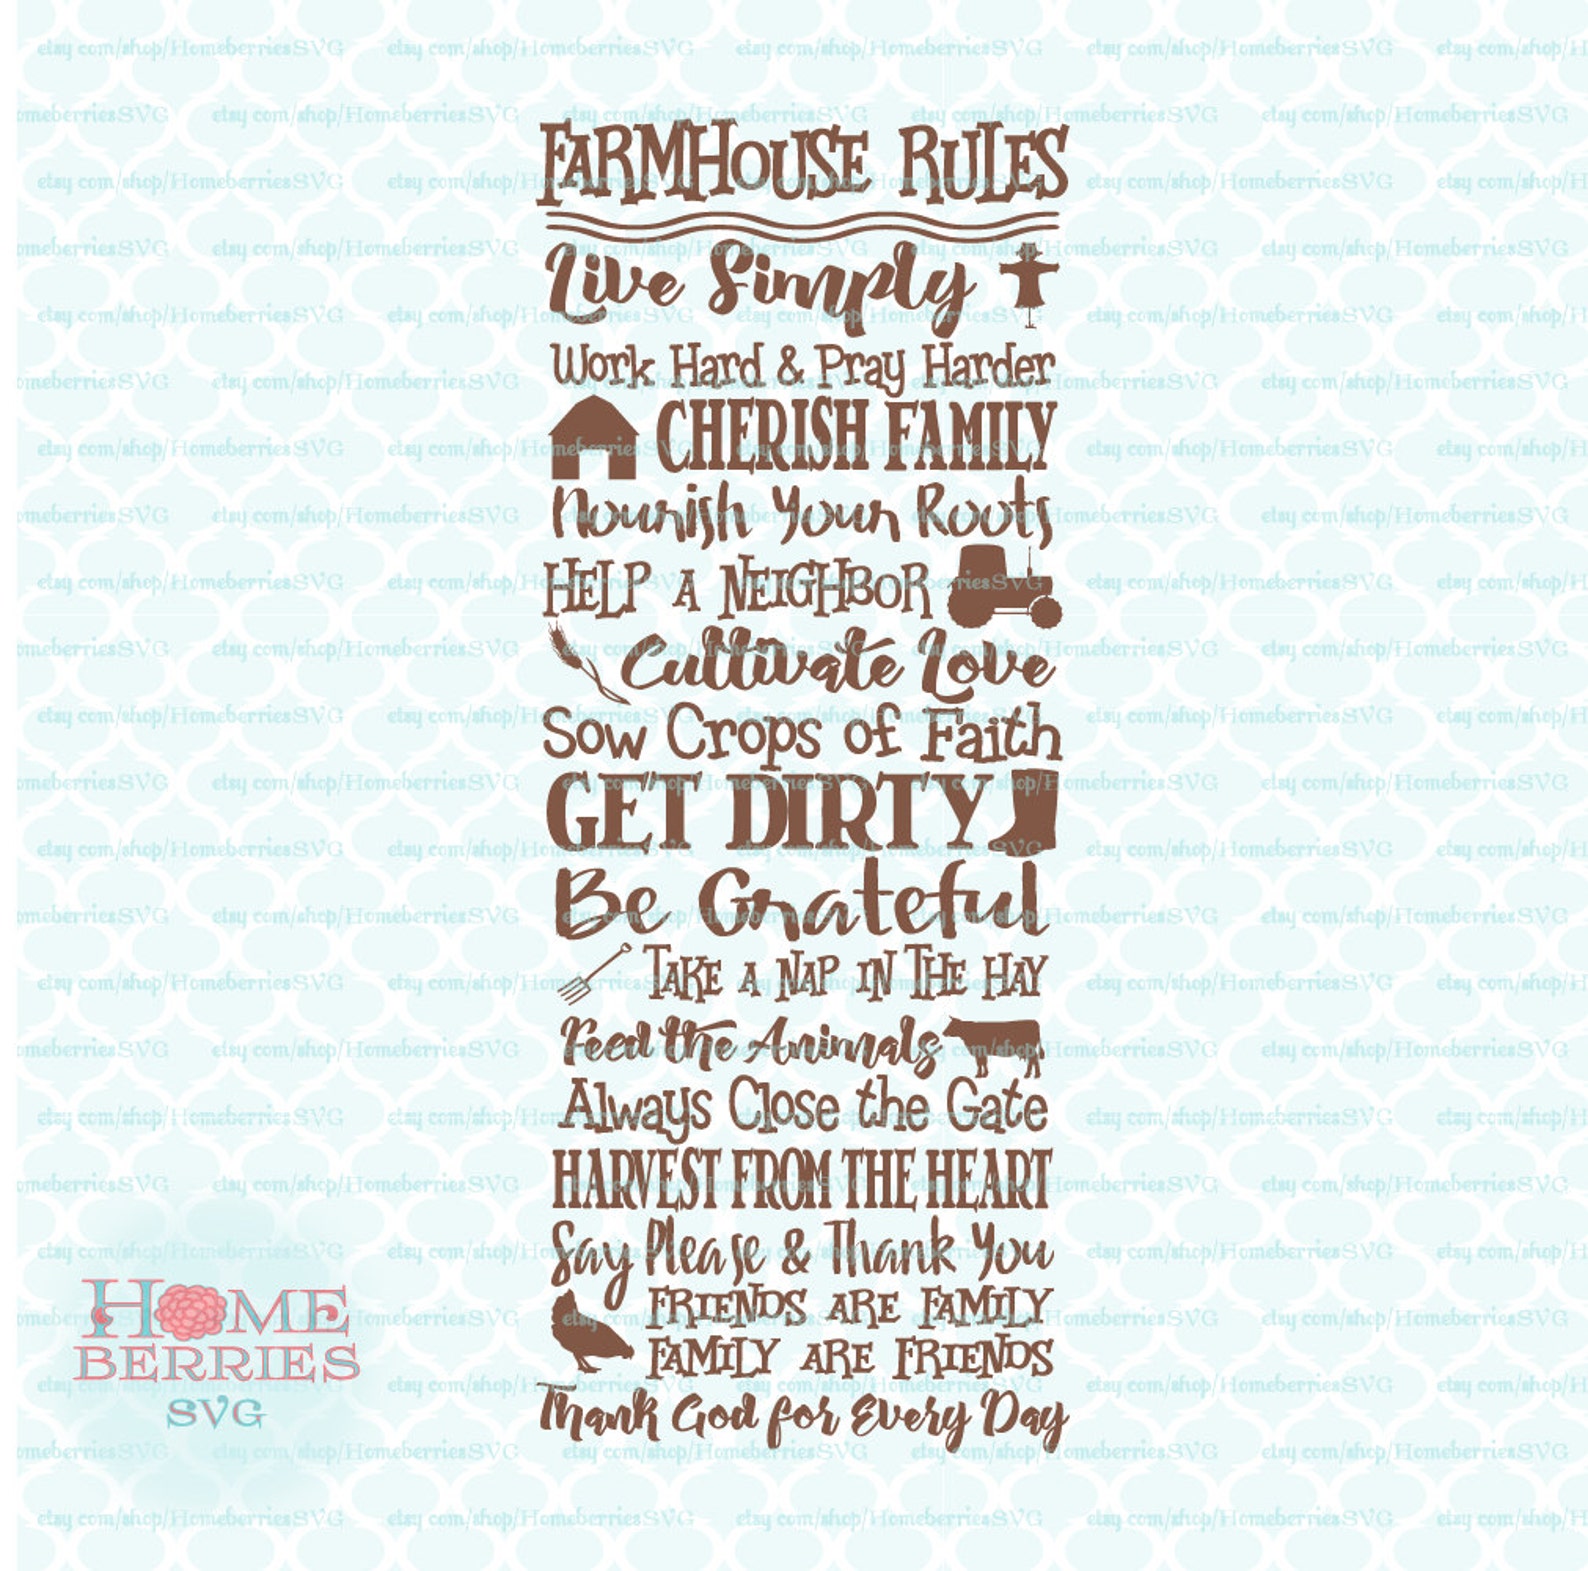 FARMHOUSE RULES
Live Simply
Work Hard & Pray Harder
CHERISH FAMILY
Nourish Your Roots
HELP A NEIGHBOR
Cultivate Love
Sow Crops of Faith
GET DIRTY
Be Grateful
TAKE A NAP IN THE HAY
Feed the Animals
Always Close the Gate
HARVEST FROM THE HEART
Say Please & Thank You
FRIENDS ARE FAMILY
FAMILY ARE FRIENDS
Thank God for Every Day
HOME
BERRIES
SVG
etsy.com/shop/HomeberriesSVG